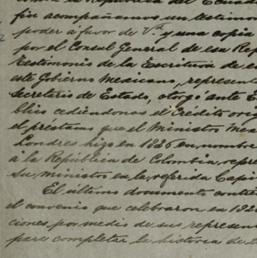 con la República del Ecuad
fin acompañamos un testimon
poder á favor de V. y una copia
por el Consul General de esa Rep
testimonio de la Escritura de ce
este Gobierno Mexicano, represent
Secretario de Estado, otorgó ante E
blio cediéndonos el Crédito orig
el préstamo que el Ministro Mex
Londres hizo en 1826 en nombre
á la República de Colombia, repre
su ministro en la referida Capi
El último documento contie
el convenio que celebraron en 182
ciones por medio de sus represent
para completar la historia de